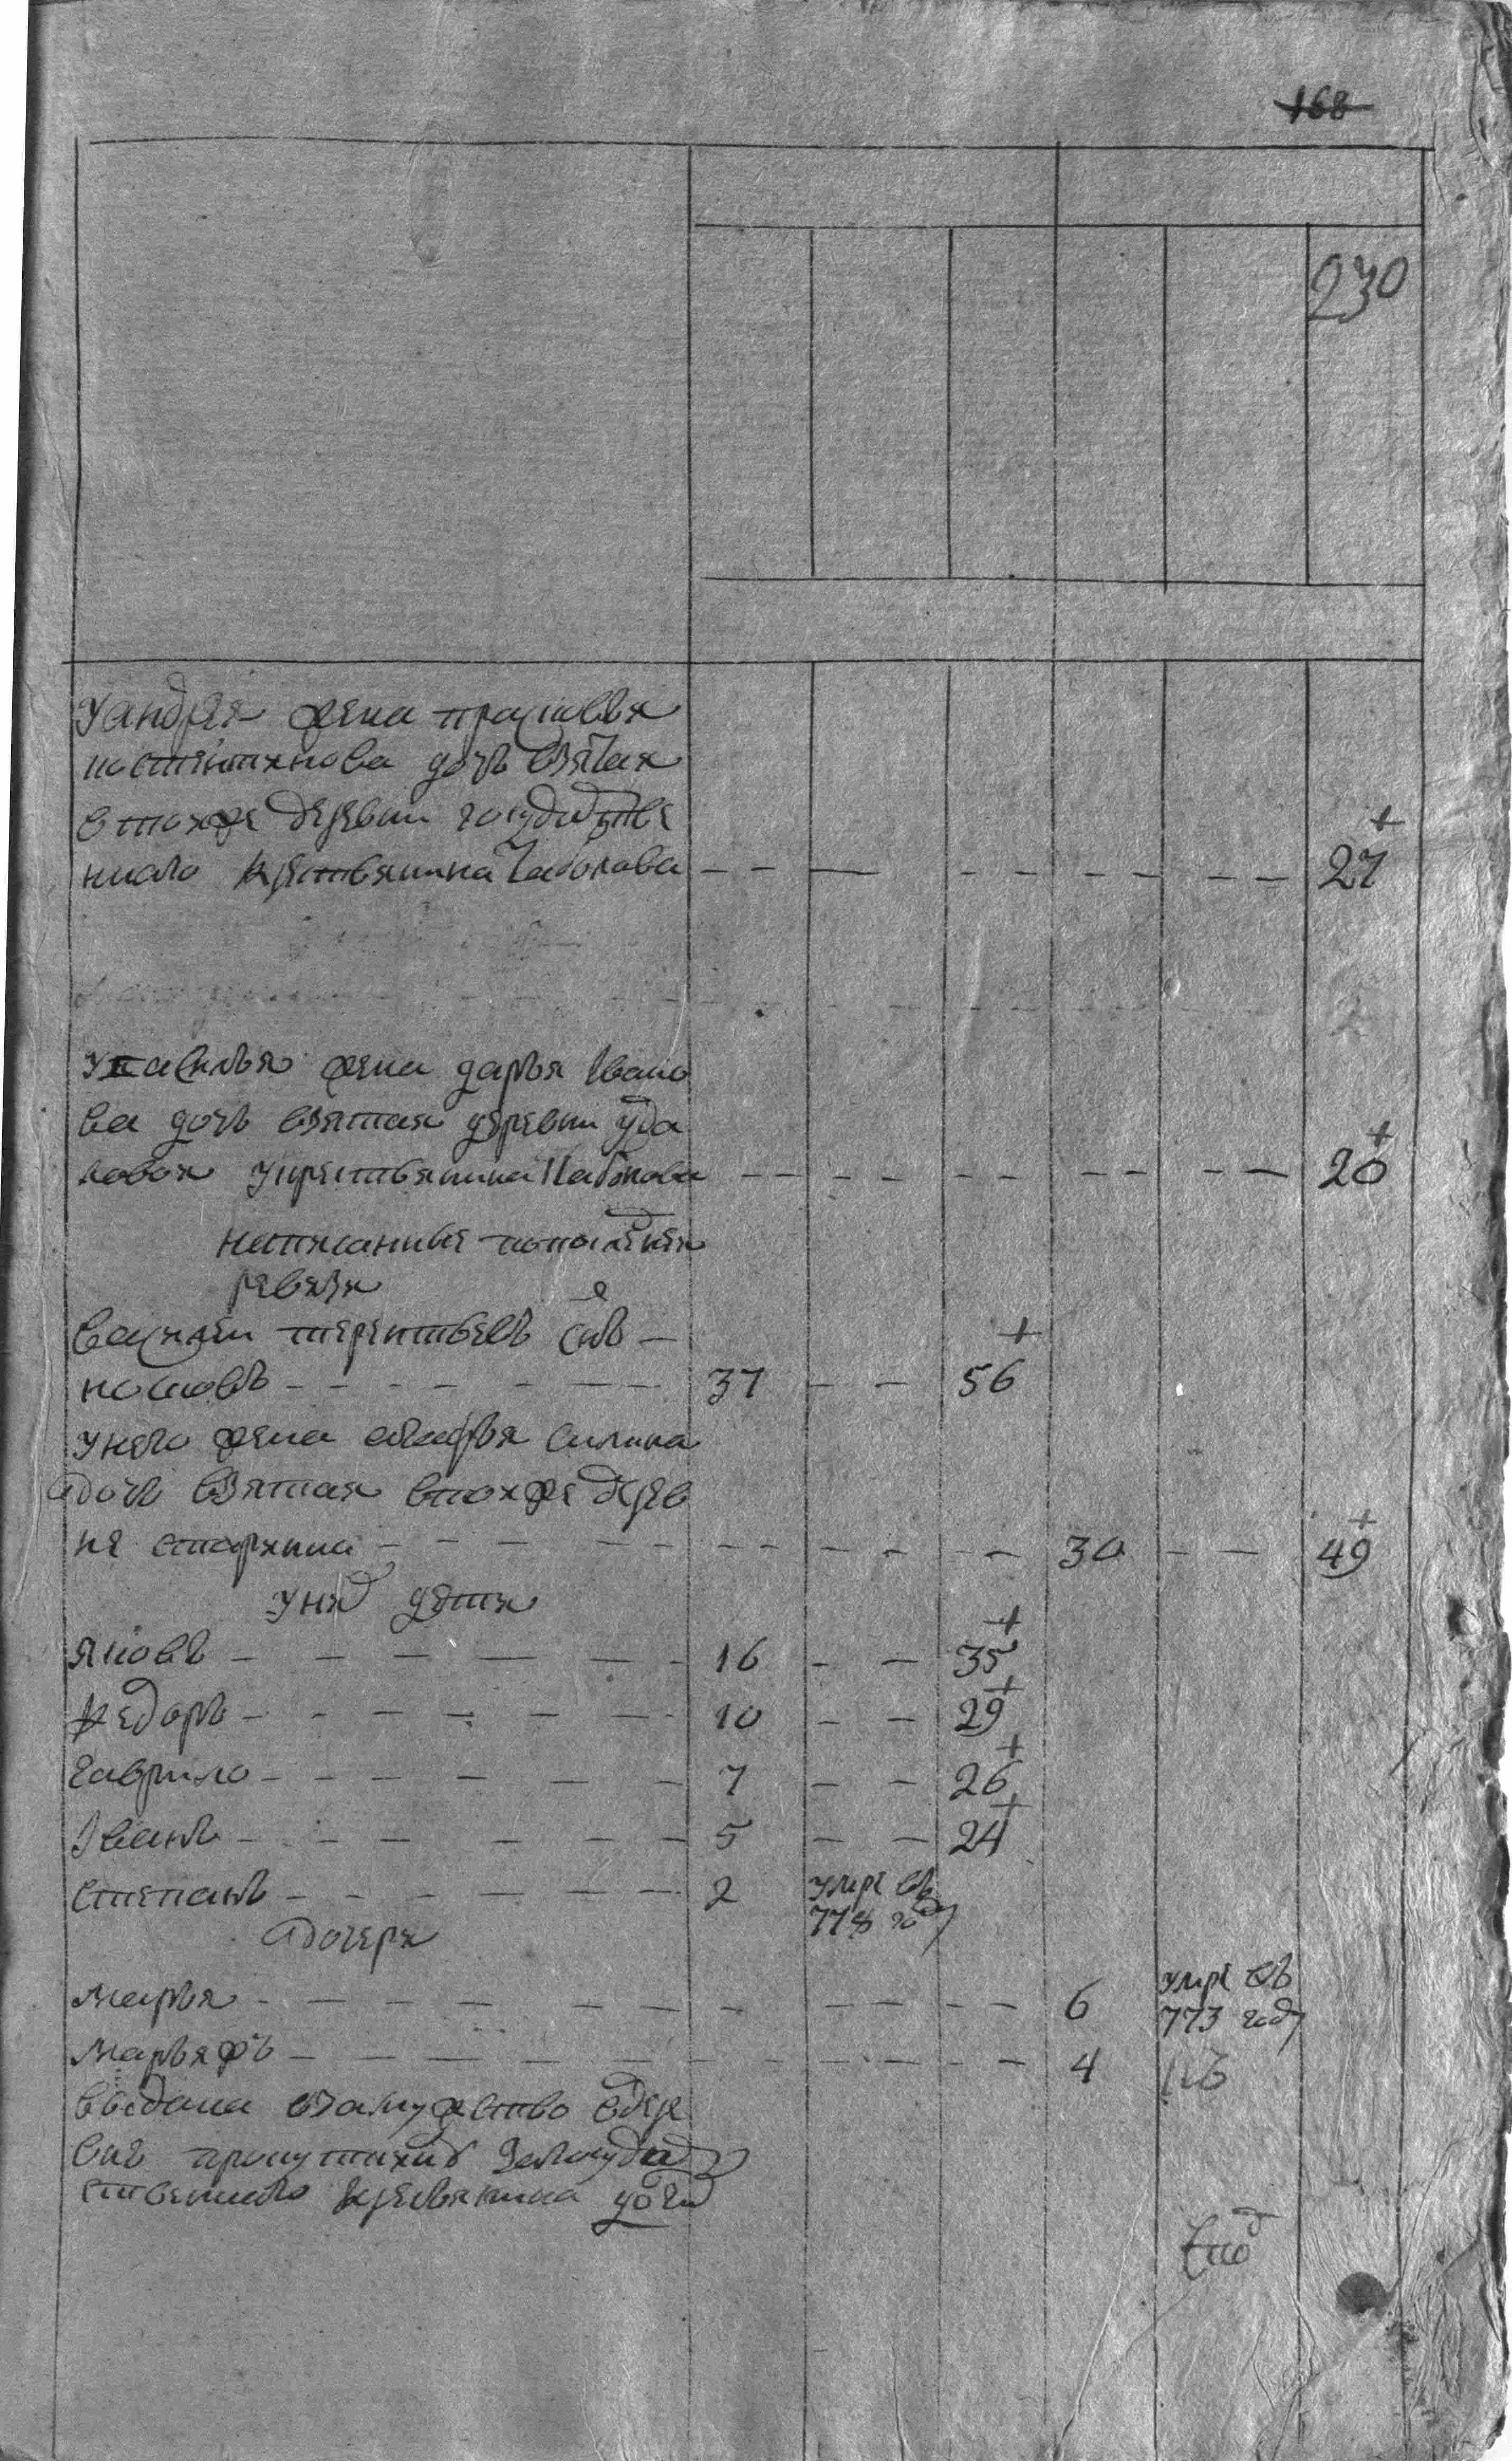 168
230
у андрея жена прасковья
костентинова дочь взятая
в тохже деревни государстве
ннаго крестьянина + 27
у василья жена дарья Ивано
ва дочь взятая деревни уда
ловои у крестьянина набокова - - - - - - - - + 20
написанныя по последнеи
ревизи
василеи терентьевъ снъ —
носковъ - - - - - - 37 - - + 56
у него жена агафья силина
дочь взятая в тохже дерев
не старжина - - - - - - - 30 - - + 49
у них дети
яковъ - - - - - - 16 - - + 35
федоръ - - - - - - 10 - - + 29
гаврило - - - - - - 7 - - + 26
Иванъ - - - - - - 5 - - + 24
степанъ - - - - - - 2 умре въ
778 году
дочери
марья - - - - - - - - - - 6 умре въ
773 году
марья жъ - - - - - - - - - - 4
выдана взамужество в дере
вне за государ
ственнаго крестьянина